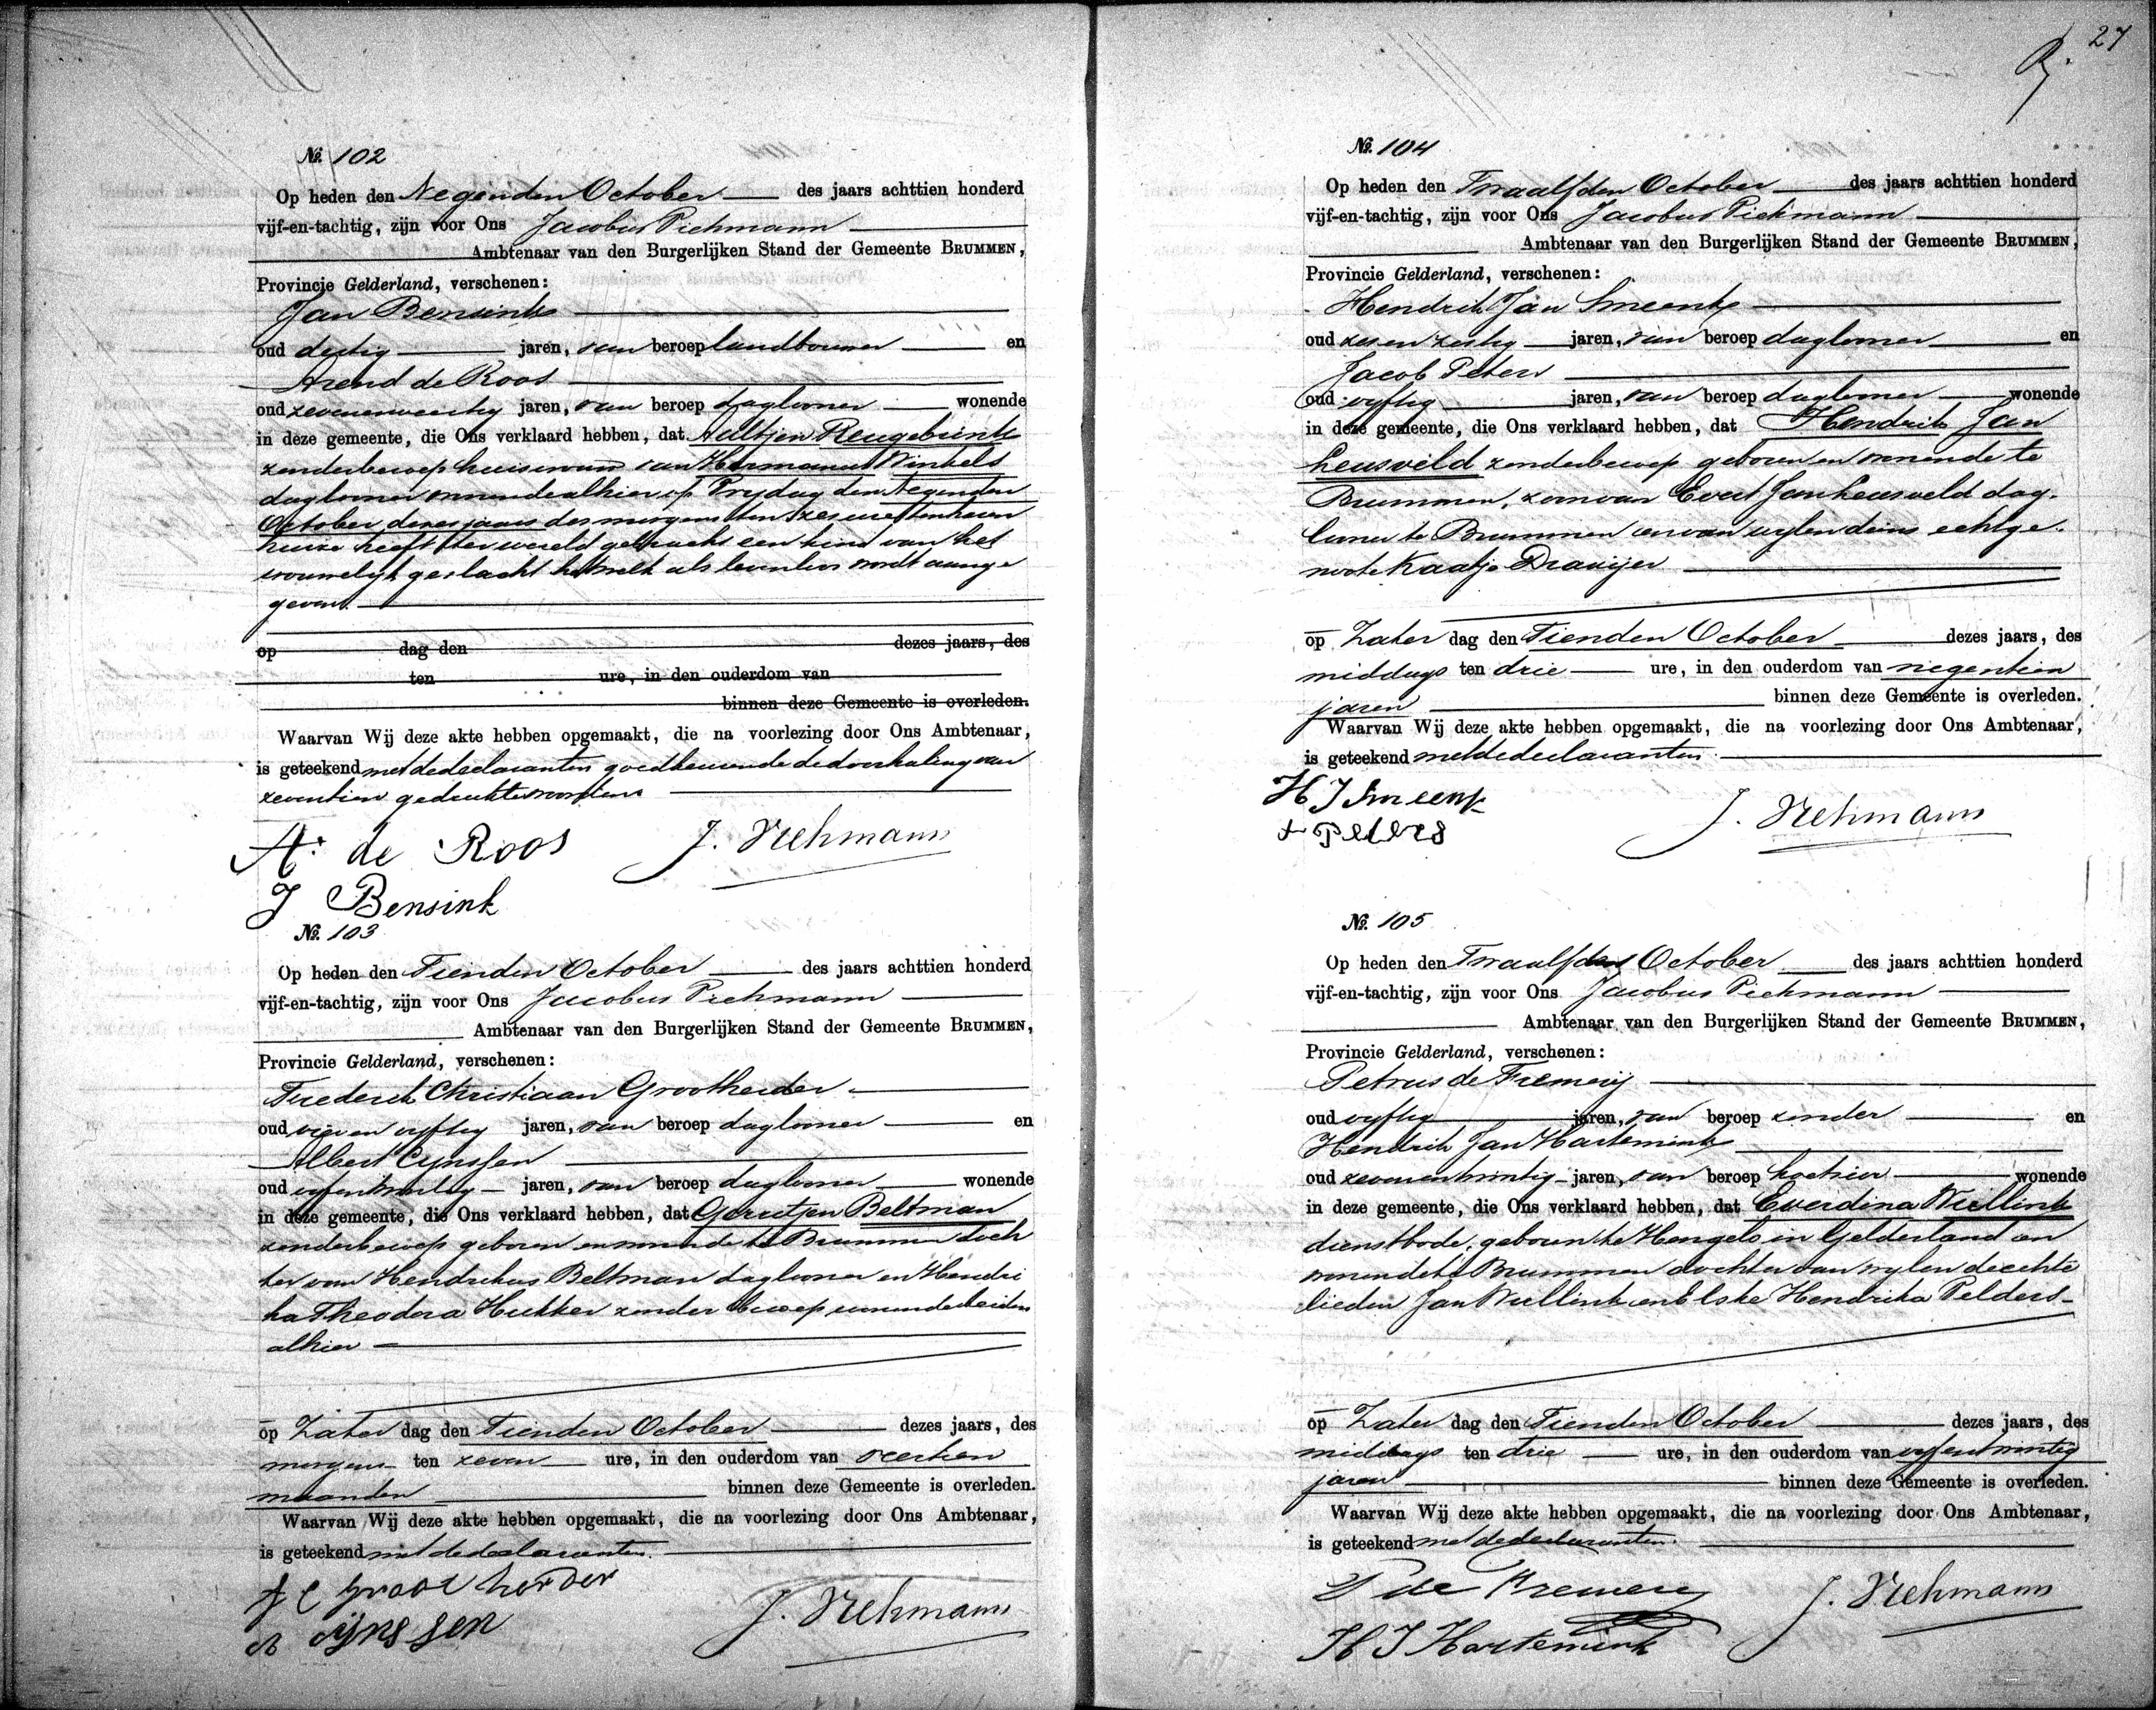 27
№ 102
Op heden den Negenden October des jaars achttien honderd
vijf-en-tachtig, zijn voor Ons Jacobus Piehmann
Ambtenaar van den Burgerlijken Stand der Gemeente BRUMMEN,
Provincie Gelderland, verschenen:
Jan Bensink
oud dertig jaren, van beroep landbouwer en
Arend de Roos
oud zevenenveertig jaren, van beroep daglooner wonende
in deze gemeente, die Ons verklaard hebben, dat Aeltjen Reugebrink
zonder beroep huisvrouw van Harmanus Winkels
daglooner wonende alhier op Vrijdag den Negenden
October dezes jaars des morgens ten zes ure ten haren
huize heeft ter wereld gebracht een kind van het
vrouwelijk geslacht hetwelk als levenloos wordt aange
geven.
op dag den dezes jaars, des
ten ure, in den ouderdom van
binnen deze Gemeente is overleden.
Waarvan Wij deze akte hebben opgemaakt, die na voorlezing door Ons Ambtenaar,
is geteekend met de declaranten goedkeurende de doorhaling van
zeventien gedrukte woorden
A. de Roos J. Piehmann
J Bensink
№ 103
Op heden den Tienden October des jaars achttien honderd
vijf-en-tachtig, zijn voor Ons Jacobus Piehmann
Ambtenaar van den Burgerlijken Stand der Gemeente BRUMMEN,
Provincie Gelderland, verschenen:
Frederik Christiaan Grootherder
oud vier en vijftig jaren, van beroep daglooner en
Albert Eijnssen
oud jaren, van beroep daglooner wonende
in deze gemeente, die Ons verklaard hebben, dat Gerritjen Beltman
zonder beroep geboren en wonende te Brummen doch
ter van Hendrikus Beltman daglooner en Hendri
ka Theodora Hukker zonder beroep wonende beiden
alhier
op Zater dag den Tienden October dezes jaars, des
morgens ten zeven ure, in den ouderdom van veertien
maanden binnen deze Gemeente is overleden.
Waarvan Wij deze akte hebben opgemaakt, die na voorlezing door Ons Ambtenaar,
is geteekend met de declaranten.
F C Grootherder
A Eijnssen J. Piehmann
№ 104
Op heden den Twaalfden October des jaars achttien honderd
vijf-en-tachtig, zijn voor Ons Jacobus Piehmann
Ambtenaar van den Burgerlijken Stand der Gemeente BRUMMEN,
Provincie Gelderland, verschenen:
Hendrik Jan Smeenk
oud zes en zestig jaren, van beroep daglooner en
Jacob Peters
oud vijftig jaren, van beroep daglooner wonende
in deze gemeente, die Ons verklaard hebben, dat Hendrik Jan
Leusveld zonder beroep geboren en wonende te
Brummen, zoon van Evert Jan Leusveld dag-
looner te Brummen en van wijlen diens echtge-
noote Kaatje Draaijer
op Zater dag den Tienden October dezes jaars, des
middags ten drie ure, in den ouderdom van negentien
jaren binnen deze Gemeente is overleden.
Waarvan Wij deze akte hebben opgemaakt, die na voorlezing door Ons Ambtenaar,
is geteekend met de declaranten.
H J Smeenk
J Peters J. Piehmann
№ 105
Op heden den Twaalfden October des jaars achttien honderd
vijf-en-tachtig, zijn voor Ons Jacobus Piehmann
Ambtenaar van den Burgerlijken Stand der Gemeente BRUMMEN,
Provincie Gelderland, verschenen:
Petrus de Fremerij
oud vijftig jaren, van beroep zonder en
Hendrik Jan Hartemink
oud zevenentwintig jaren, van beroep koetsier wonende
in deze gemeente, die Ons verklaard hebben, dat Everdina Wullink
dienstbode, geboren te Hengelo in Gelderland en
wonende te Brummen dochter van wijlen de echte
lieden Jan Wullink en Elske Hendrika Pelders
op Zater dag den Tienden October dezes jaars, des
middags ten drie ure, in den ouderdom van vijfentwintig
jaren binnen deze Gemeente is overleden.
Waarvan Wij deze akte hebben opgemaakt, die na voorlezing door Ons Ambtenaar,
is geteekend met de declaranten.
P de Fremery J. Piehmann
H J Hartemink